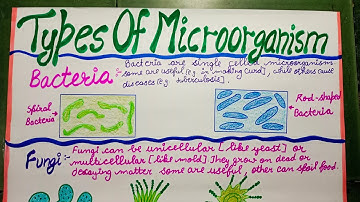 Types Of Microorganism
Bacteria :- Bacteria are single celled microorganisms
some are useful [e.g in making Curd], while others cause
diseases [e.g tuberculosis].
Spiral
Bacteria
Rod-shaped
Bacteria
Fungi :- Fungi can be unicellular [like yeast] or
multicellular [like mold]. They grow on dead or
decaying matter some are useful, other can spoil food.